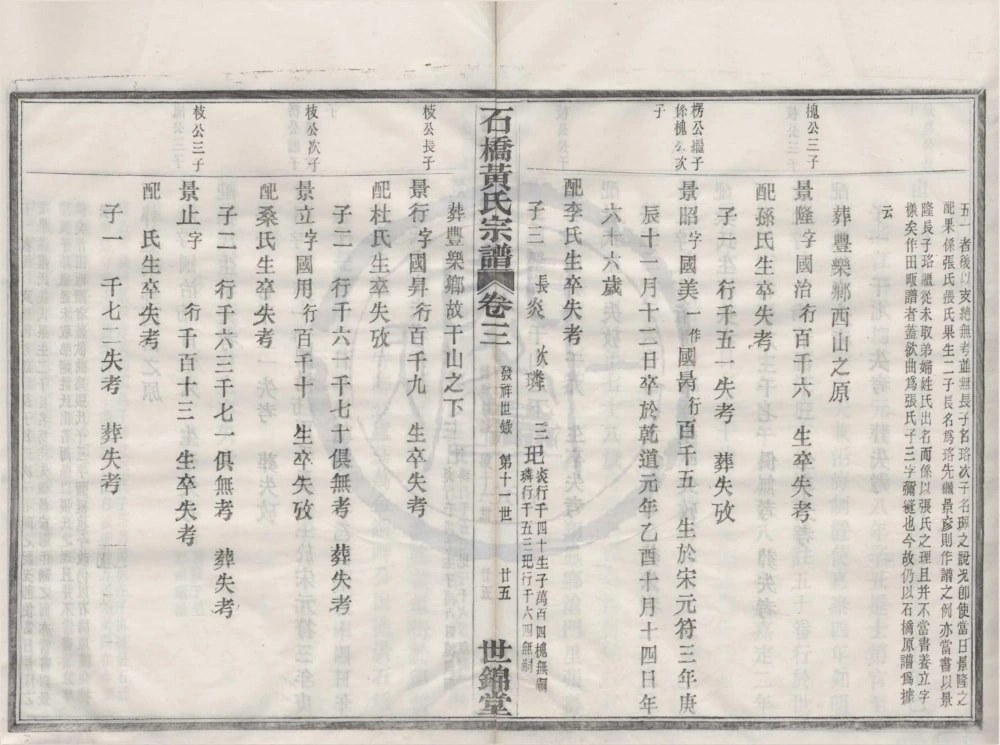 五一者後以支總無考並無長子名珞次子名珮之說况卽使當日景隆之
配果係張氏張氏果生二子長名爲珞先繼景彥則作譜之例亦當書以景
隆長子珞繼從未取弟婦姓氏出名而係以張氏之理且并不當書養立字
樣矣作田畈譜者蓋欲曲爲張氏子三字彌縫也今故仍以石橋原譜爲據
云
葬豐樂鄉西山之原
槐公三子
景隆字國治行百千六 生卒失考
配孫氏生卒失考
子一 行千五一失考 葬失攷
楞公繼子
係槐公次
子
景昭字國美一作國昺行百千五 生於宋元符三年庚
辰十一月十二日卒於乾道元年乙酉十月十四日年
六十六歲
配李氏生卒失考
子三 長炎 次璘 三玘 炎行千四十生子萬百四槐無嗣
璘行千五三玘行千六四無嗣
石橋黃氏宗譜 卷三 發祥世錄 第十一世 廿五 世錦堂
葬豐樂鄉故干山之下
枝公長子
景行字國昇行百千九 生卒失考
配杜氏生卒失攷
子二 行千六一千七十俱無考 葬失考
枝公次子
景立字國用行百千十 生卒失攷
配桑氏生卒失考
子二 行千六三千七一俱無考 葬失考
枝公三子
景止字 行千百十三 生卒失考
配 氏生卒失考
子一 千七二失考 葬失考